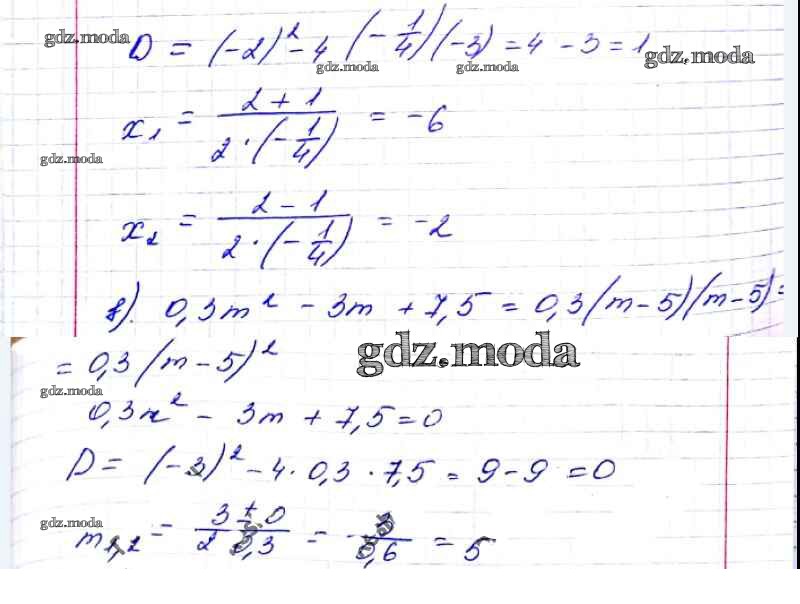 gdz.moda
D = (-2)² - 4 (-1/4)(-3) = 4 - 3 = 1
gdz.moda gdz.moda gdz.moda
x₁ = (2 + 1)/(2 · (-1/4)) = -6
gdz.moda
x₂ = (2 - 1)/(2 · (-1/4)) = -2
в). 0,3m² - 3m + 7,5 = 0,3(m-5)(m-5) =
= 0,3(m-5)²
gdz.moda
gdz.moda
0,3m² - 3m + 7,5 = 0
D = (-3)² - 4 · 0,3 · 7,5 = 9 - 9 = 0
gdz.moda
m₁,₂ = (3 ± 0)/(2 · 0,3) = 3/0,6 = 5